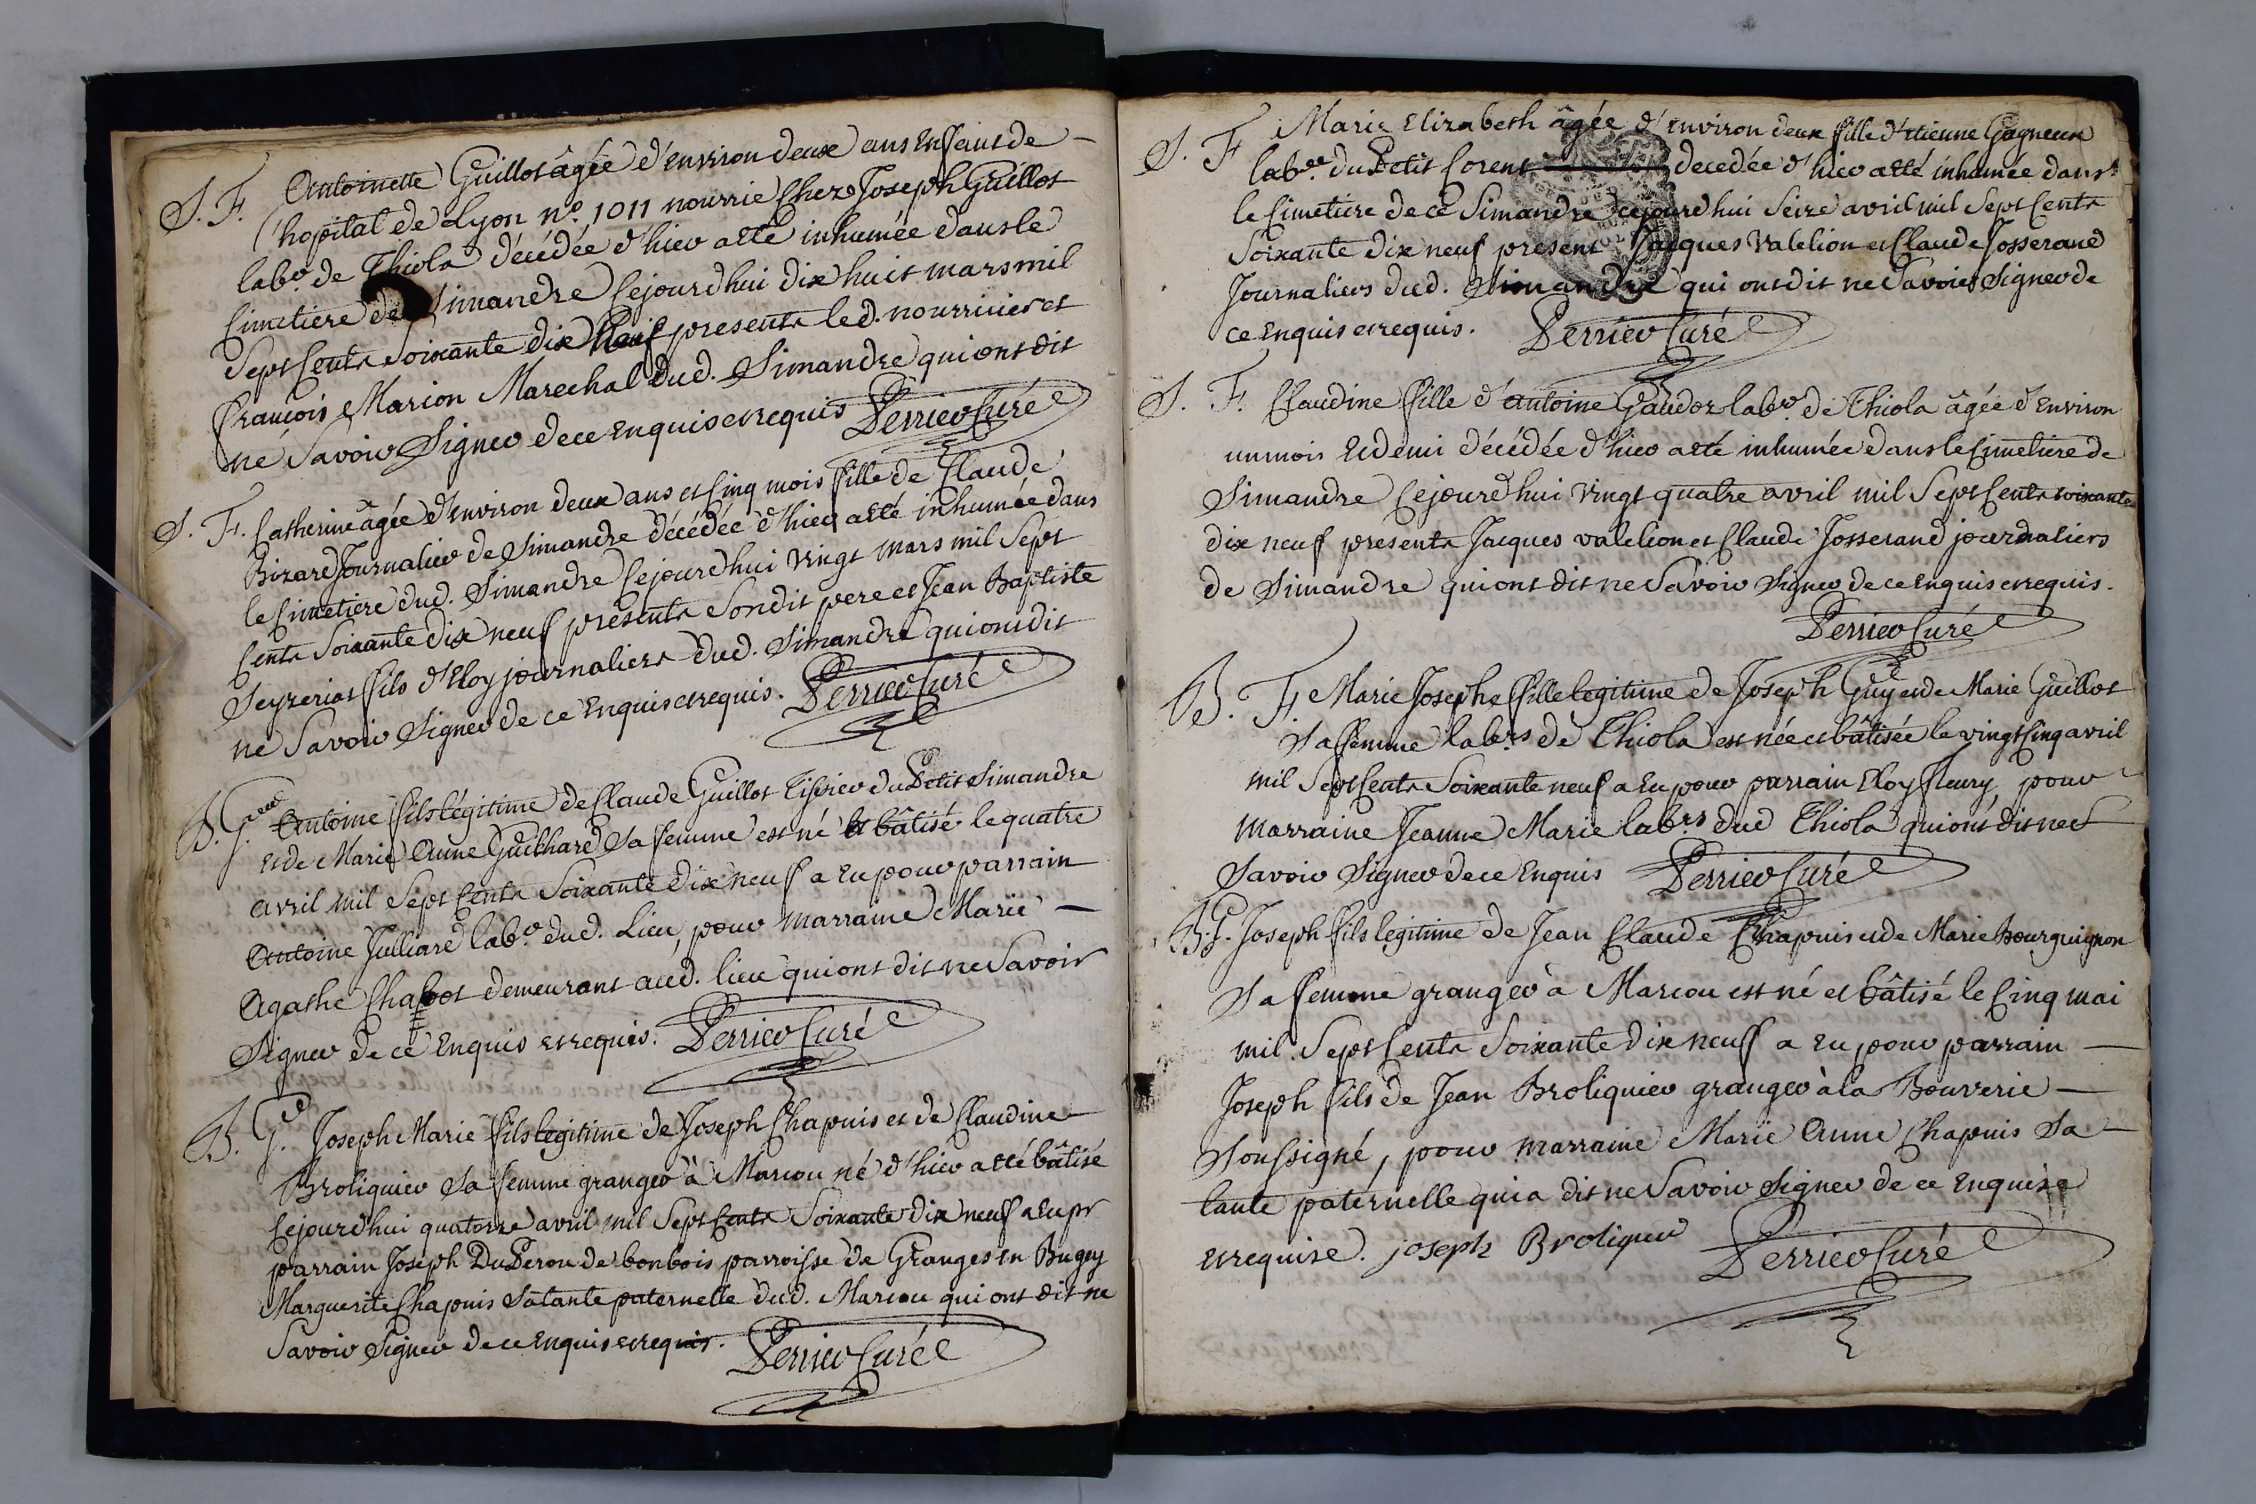 S. F. Antoinette Guillot âgée d'environ deux ans Enfant de
l'hopital de Lyon n.o 1011 nourrie Chez Joseph Guillot
labr. de Thiola décédée d'hier a eté inhumée dans le
Cimetiere de Simandre Cejourdhui dix huit mars mil
Sept Cents Soixante dix Neuf presents led. nourricier et
François Marion Marechal dud. Simandre qui ont dit
ne Savoir Signer de ce Enquis et requis Perrier Curé
S. F. Catherine âgée d'environ deux ans et Cinq mois fille de Claude
Bizard Journalier de Simandre décédée d'hier a eté inhumée dans
le Cimetiere dud. Simandre Cejourdhui vingt mars mil Sept
Cents Soixante dix neuf presents Sondit pere et Jean Baptiste
Seyzeriat fils d'Eloy journaliers dud. Simandre qui ont dit
ne Savoir Signer de ce Enquis et requis. Perrier Curé
B. G. Antoine fils légitime de Claude Guillot Tissier du Petit Simandre
et de Marie Anne Guichard Sa femme est né et bâtisé le quatre
avril mil Sept Cents Soixante dix neuf a Eu pour parrain
Antoine Julliard labr. dud. Lieu, pour marraine Marie
Agathe Chabot demeurant aud. lieu qui ont dit ne Savoir
Signer de ce Enquis et requis. Perrier Curé
B. G. Joseph Marie fils legitime de Joseph Chapuis et de Claudine
Broliquier Sa femme granger à Marcou né d'hier a eté bâtisé
Cejourdhui quatorze avril mil Sept Cents Soixante dix neuf a Eu pr
parrain Joseph DuPerou de bonbois parroisse de Granges en Bugey
Marguerite Chapuis Sa tante paternelle dud. Marcou qui ont dit ne
Savoir Signer de ce Enquis et requis. Perrier Curé
S. F. Marie Elizabeth âgée d'environ deux fille d'Etienne Gagneux
labr. du Petit Corent decedée d'hier a eté inhumée dans
le Cimetiere de ce Simandre cejourdhui Seize avril mil Sept Cents
Soixante dix neuf present Jacques Valelion et Claude Josserand
Journaliers dud. Simandre qui ont dit ne Savoir Signer de
ce Enquis et requis. Perrier Curé
S. F. Claudine fille d'antoine Gaudoz labr. de Thiola âgée d'Environ
un mois Et demi décédée d'hier a eté inhumée dans le Cimetiere de
Simandre Cejourdhui vingt quatre avril mil Sept Cents soixante
dix neuf presents Jacques valelion et Claude Josserand journaliers
de Simandre qui ont dit ne Savoir Signer de ce Enquis et requis.
Perrier Curé
B. F. Marie Josephe fille legitime de Joseph Guy et de Marie Guillot
Sa femme labrs de Thiola est née et bâtisée le vingt Cinq avril
mil Sept Cents Soixante neuf a Eu pour parrain Eloy fleury pour
marraine Jeanne Marie labrs dud Thiola qui ont dit ne
Savoir Signer de ce Enquis Perrier Curé
B. G. Joseph fils legitime de Jean Claude Chapuis et de Marie bourguignon
Sa femme granger à Marcou est né et bâtisé le Cinq mai
mil Sept Cents Soixante dix neuf a Eu pour parrain
Joseph fils de Jean Broliquier granger à la Bouverie
Soussigné, pour marraine Marie Anne Chapuis Sa
tante paternelle qui a dit ne Savoir Signer de ce Enquise
et requise. joseph Broliquier Perrier Curé